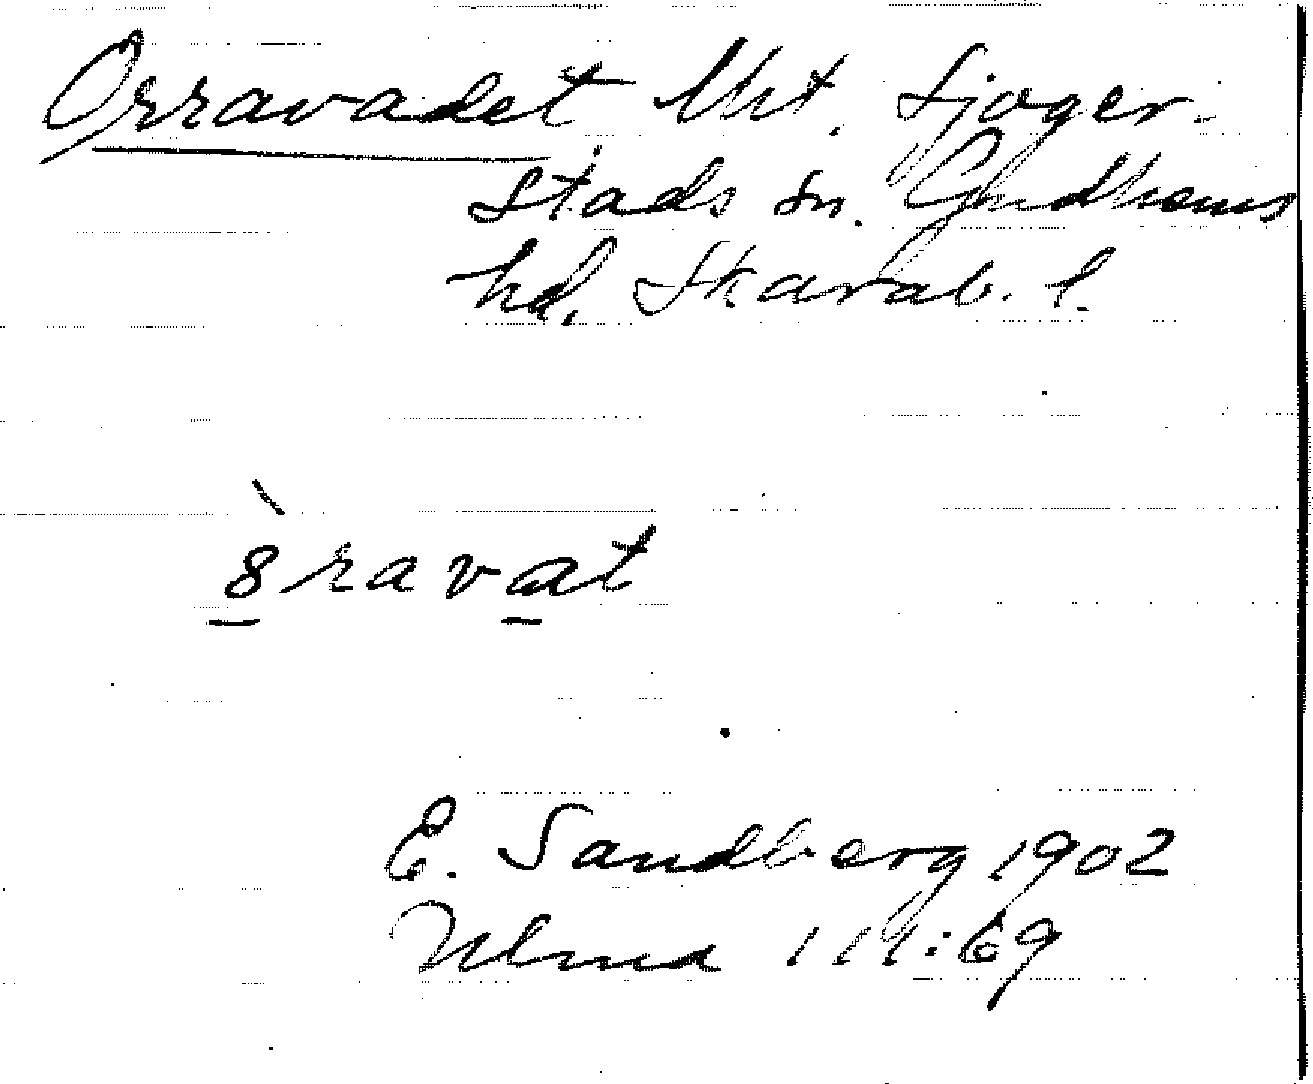 Orravadet Utit. Sjoger-
stads sn. Gudhems
hd. Skarab. l.
8̀ravat
E. Sandberg 1902
Ulma 111:69